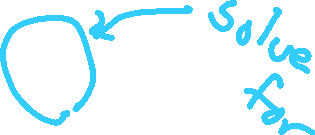 solve
for